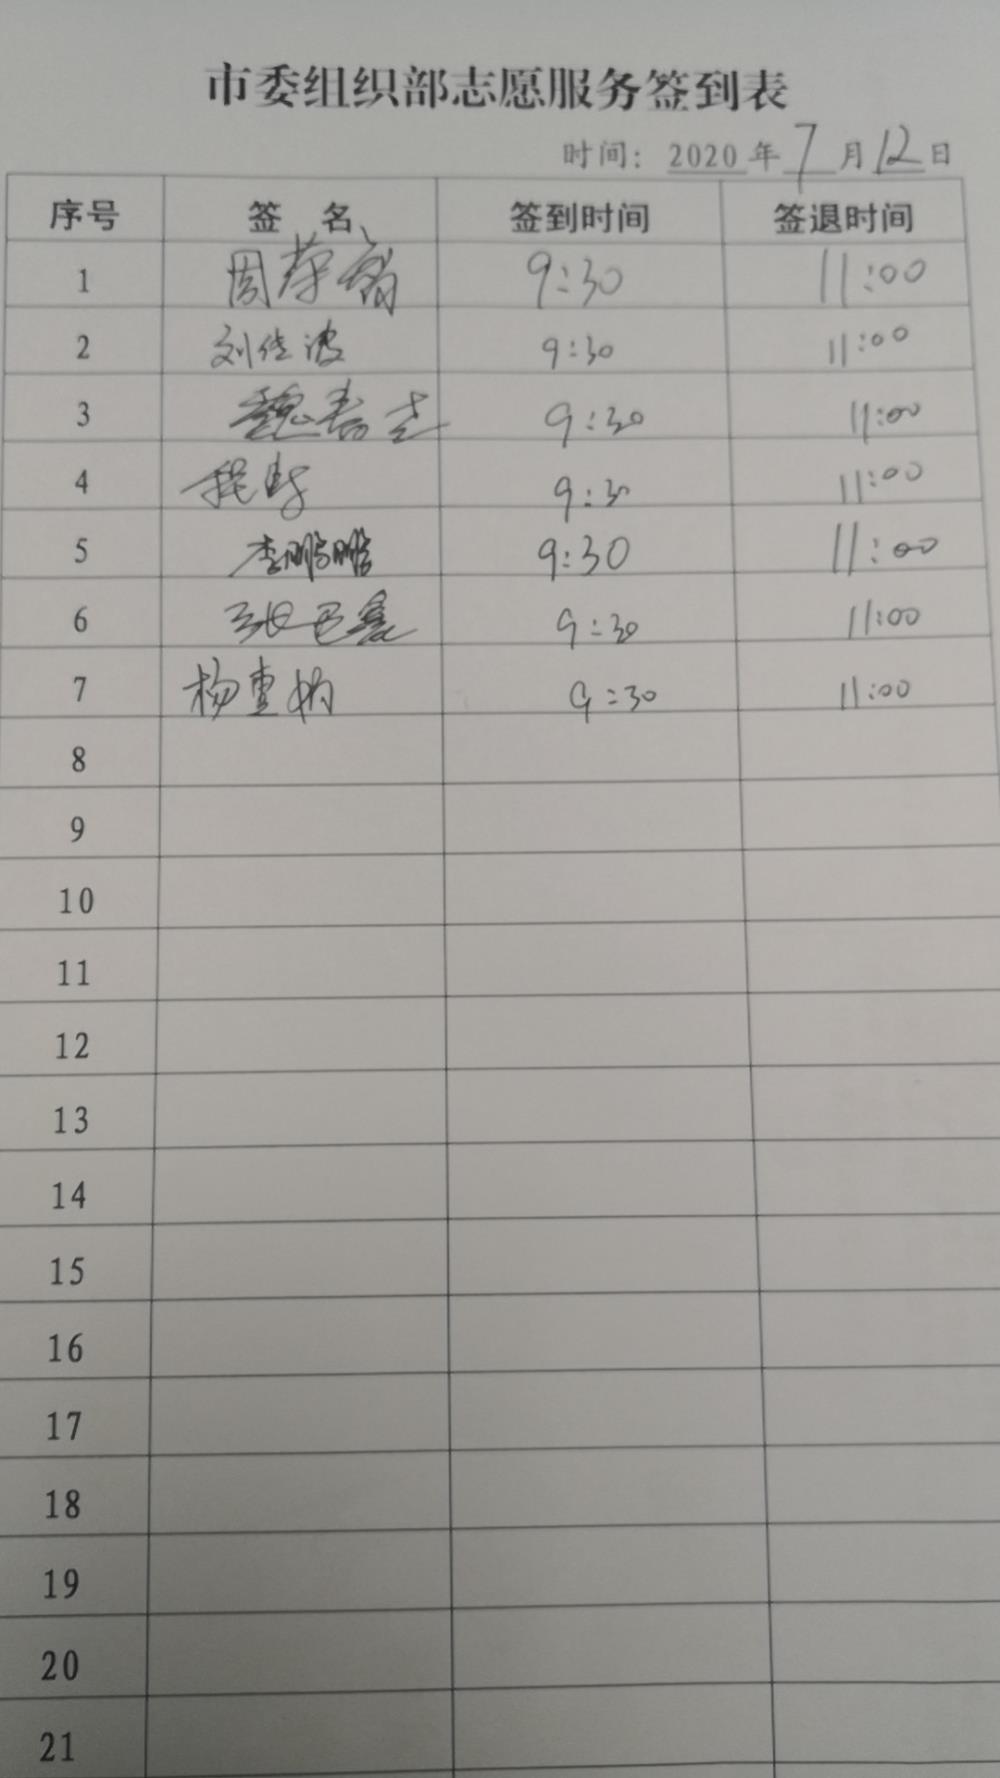 市委组织部志愿服务签到表
时间：2020年7月12日
序号 签 名 签到时间 签退时间
1 周荣 9:30 11:00
2 刘佳波 9:30 11:00
3 魏春志 9:30 11:00
4 程 9:30 11:00
5 李鹏鹏 9:30 11:00
6 张 9:30 11:00
7 杨 9:30 11:00
8
9
10
11
12
13
14
15
16
17
18
19
20
21